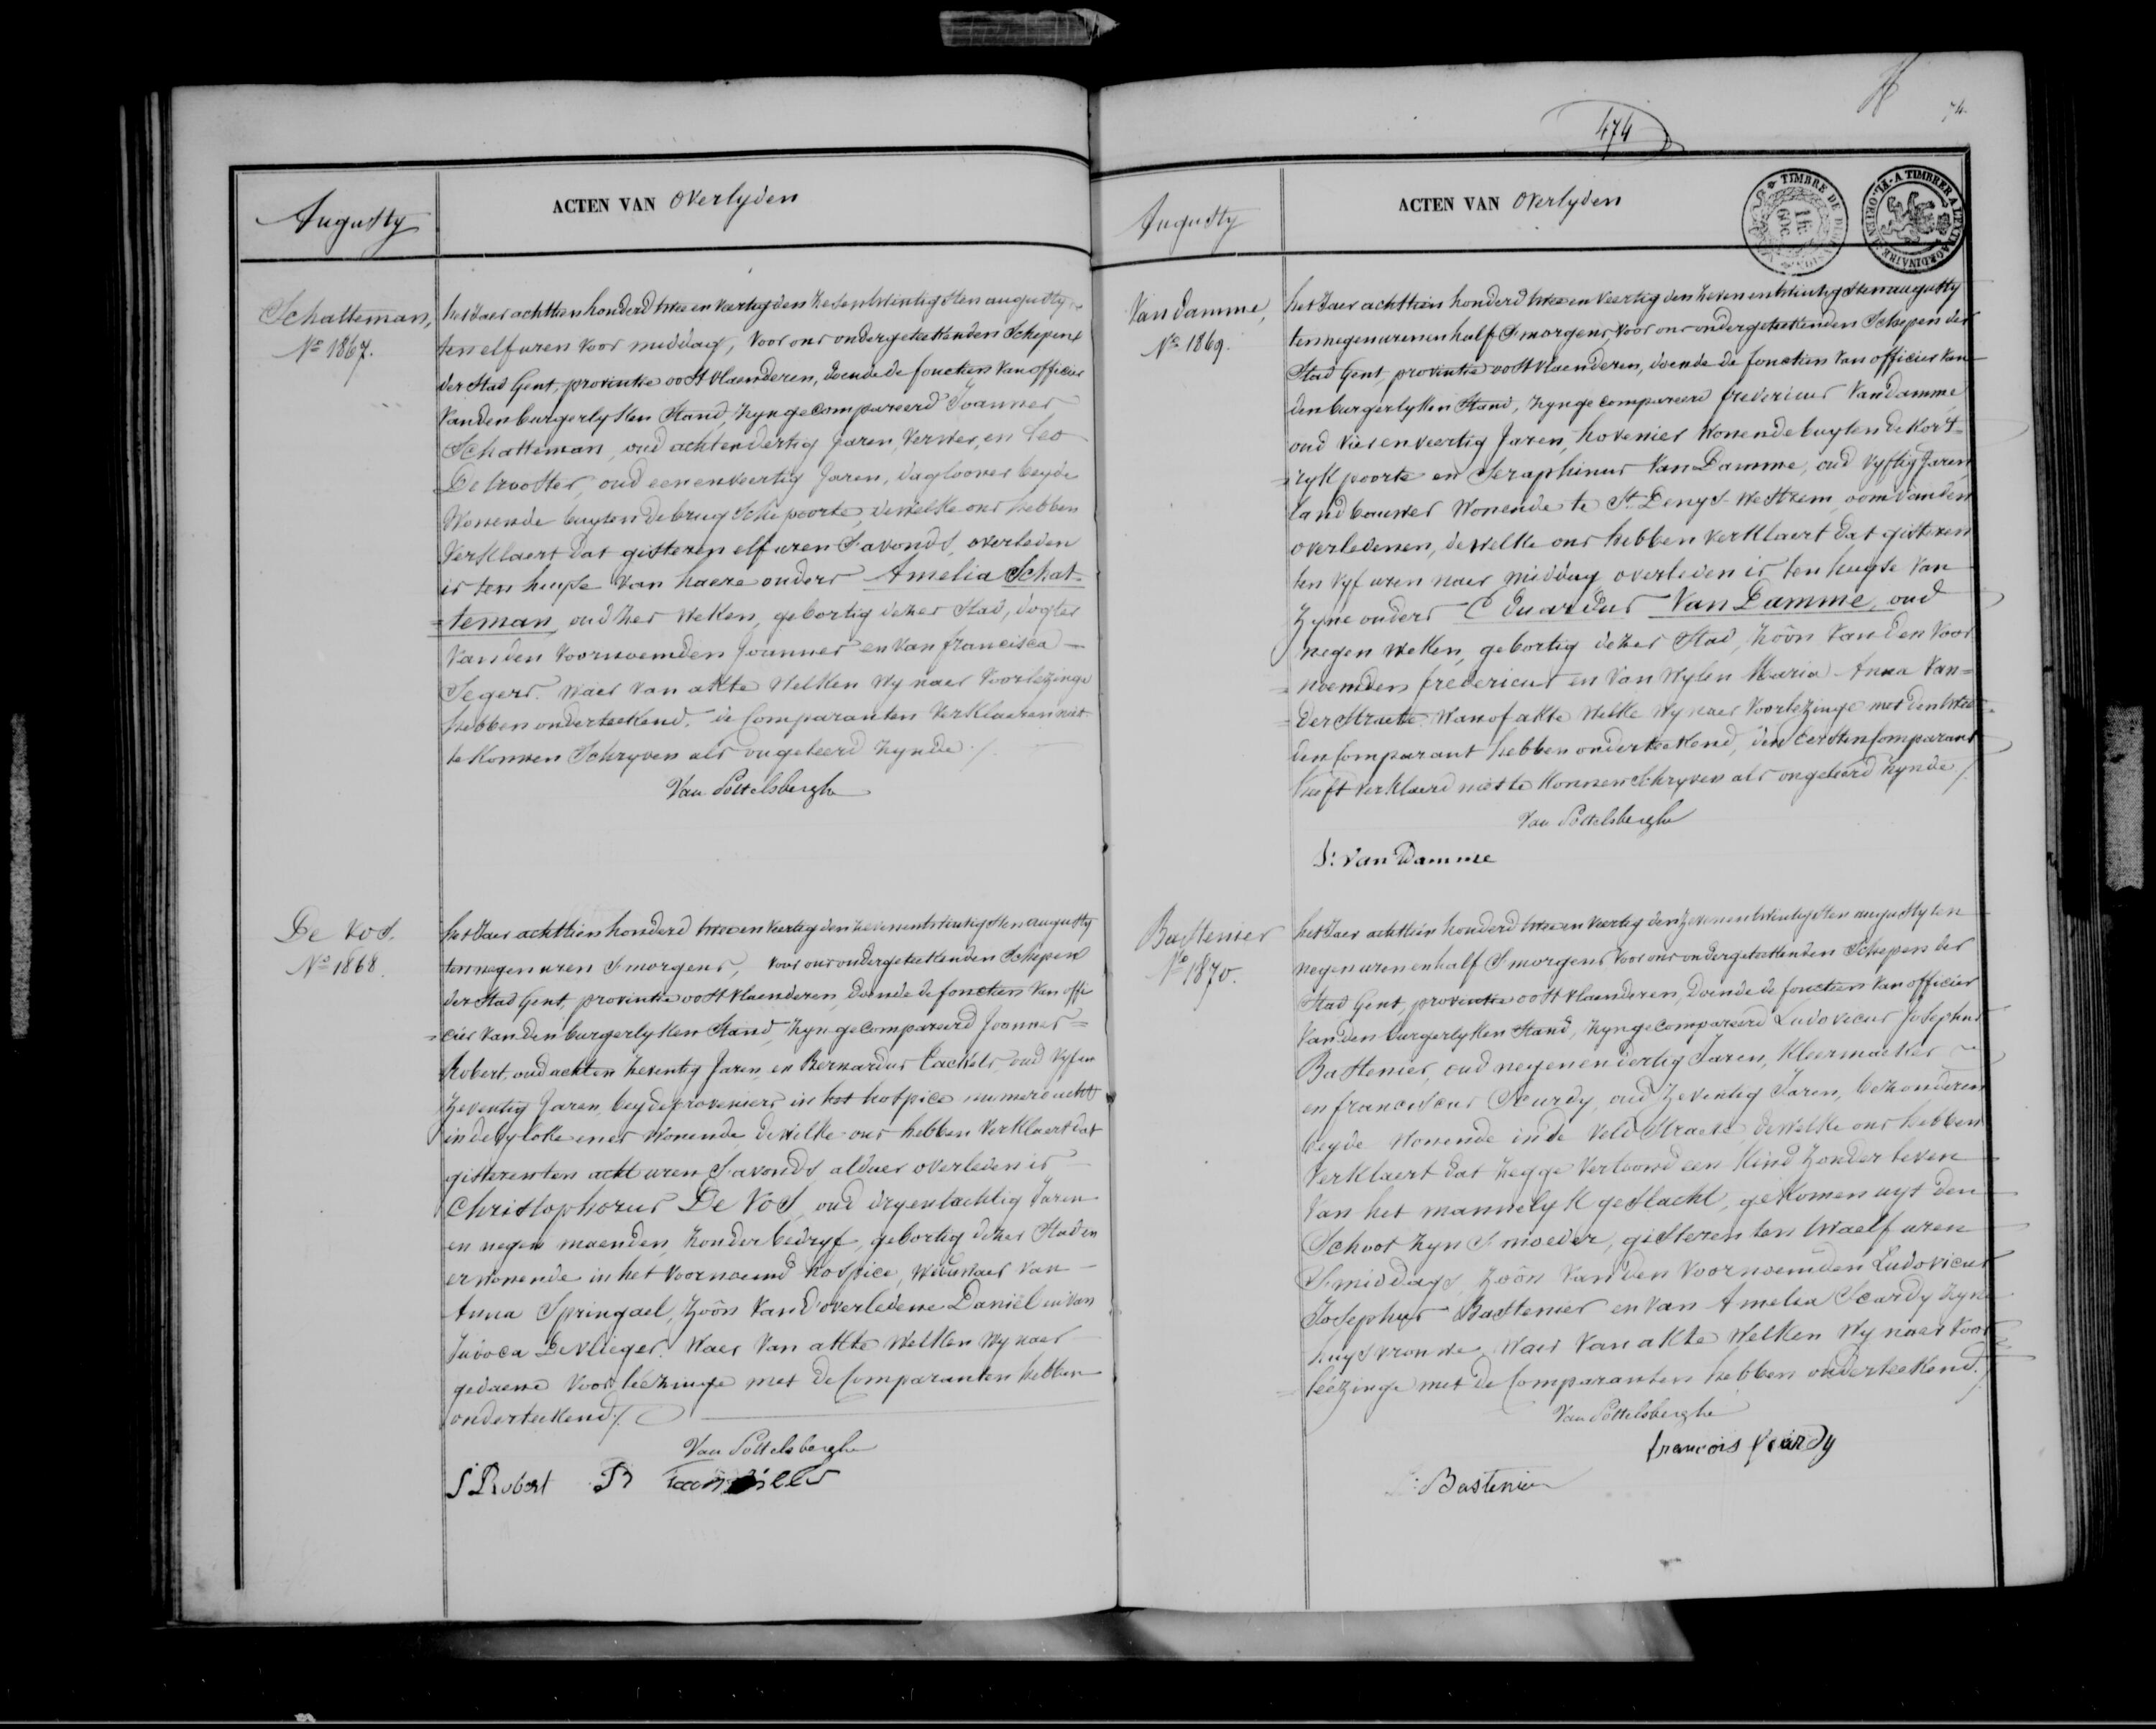 474
74.
Augusty
ACTEN VAN Overlyden
Schatteman,
No 1867.
het Jaer achttien honderd twee en veertig den zesentwintigsten augusty
ten elf uren voor middag, voor ons ondergeteekenden Schepen
der Stad Gent, provintie oostvlaenderen, doende de fonctien van officier
van den burgerlyken Stand, zyn gecompareerd Joannes
Schatteman, oud achtendertig Jaren, verwer, en Leo
De trooster, oud eenenveertig Jaren, daglooner beyde
Wonende buyten de brugsche poorte, dewelke ons hebben
Verklaert dat gisteren elf uren S'avonds, overleden
is ten huyse van haere ouders Amelia Schat=
=teman, oud zes weken, gebortig dezer Stad, dogter
van den voornoemden Joannes en van francisca
Segers. Waer van akte welken wy naer voorlezinge
hebben onderteekend. de Comparanten verklaeren niet
te konnen Schryven als ongeleerd zynde ./.
Van Pottelsberghe
De Vos.
No 1868.
het Jaer achttien honderd twee en veertig den zevenentwintigsten augusty
ten negen uren S'morgens, voor ons ondergeteekenden Schepen
der Stad Gent, provintie oostvlaenderen, doende de fonctien van offi
=cier van den burgerlyken Stand, zyn gecompareerd Joannes=
Robert, oud achten zeventig Jaren, en Bernardus oud vyfen
zeventig Jaren, beyde proveniers in het hospice numero acht
in de byloke en er Wonende dewelke ons hebben verklaert dat
gisteren ten acht uren S'avonds aldaer overleden is
Christophorus De Vos, oud dryentachtig Jaren
en negen maenden, zonder bedryf, gebortig dezer Stad en
er wonende in het voornoemd hospice, weduwaer van
Anna Springael, zoôn van d'overledene Daniël en van
Devlieger. Waer van akte welken wy naer
gedaene voorlëezinge met de Comparanten hebben
onderteekend ./.
Van Pottelsberghe
J Robert B
Augusty
ACTEN VAN Overlyden
TIMBRE DE
A TIMBRER A L'EXTRAORDINAIRE
Van damme,
No 1869.
het Jaer achttien honderd twee en veertig den zevenentwintigsten augusty
ten negen uren en half S'morgens, voor ons ondergeteekenden Schepen der
Stad Gent, provintie oostvlaenderen, doende de fonctien van officier van
den burgerlyken Stand, zyn gecompareerd fredericus Van damme
oud vierenveertig Jaren, hovenier Wonende buyten de Kort=
=ryk poorte en Seraphinus Van Damme, oud vyftig Jaren,
landbouwer Wonende te St. Denys-Westrem, oom van den
overledenen, dewelke ons hebben verklaert dat gisteren
ten vyf uren naer middag overleden is ten huyse van
zyne ouders Eduardus Van Damme, oud
negen weken, gebortig dezer Stad, zoôn van den voor
=noemden fredericus en van wylen Maria Anna Van=
=der Straete. Wanof akte welke wy naer voorlezinge met den twee
den Comparant hebben onderteekend, den eersten Comparant
heeft verklaerd niet te konnen Schryven als ongeleerd zynde ./.
Van Pottelsberghe
S: Van Damme
Bastenier
No 1870.
het Jaer achttien honderd twee en veertig den zevenentwintigsten augusty ten
negen uren en half S'morgens voor ons ondergeteekenden Schepen der
Stad Gent, provintie oostvlaenderen, doende de fonctien van officier
van den burgerlyken Stand, zyn gecompareerd Ludovicus Josephus
Bastenier, oud negenendertig Jaren, Kleermaeker
en franciscus Scurdy, oud zeventig Jaren, bezonderen
beyde Wonende in de Veld Straete, dewelke ons hebben
verklaert dat zegge vertoond een Kind zonder leven
van het mannelyk geslacht, gekomen uyt den
Schoot zyn S'moeder, gisteren ten twaelf uren
S'middags, zoôn van den voornoemden Ludovicus
Josephus Bastenier en van Amelia Scardy zyne
huysvrouwe. Waer van akte welken wy naer voor
leezinge met de Comparanten hebben onderteekend. /
Van Pottelsberghe
francois
Bastenier